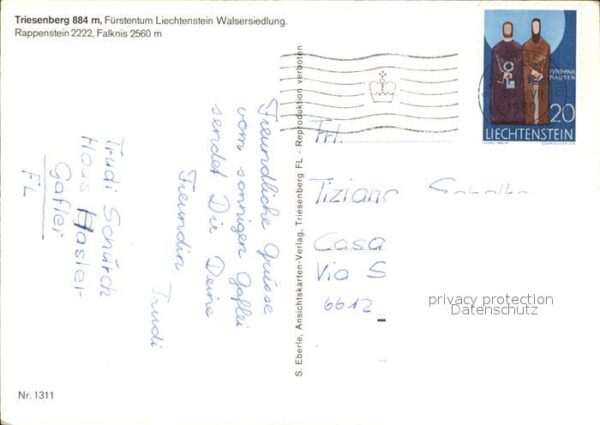 Triesenberg 884 m, Fürstentum Liechtenstein Walsersiedlung.
Rappenstein 2222, Falknis 2560 m
Freundliche Grüsse
vom sonnigen Gaflei
sendet Dir Deine
Freundin
Trudi
Trudi Schürch
Haus Hasler
Gaflei
FL
S. Eberle, Ansichtskarten-Verlag, Triesenberg FL - Reproduktion verboten
20
LIECHTENSTEIN
Frl.
Casa
Via S
6612
privacy protection
Datenschutz
Nr. 1311